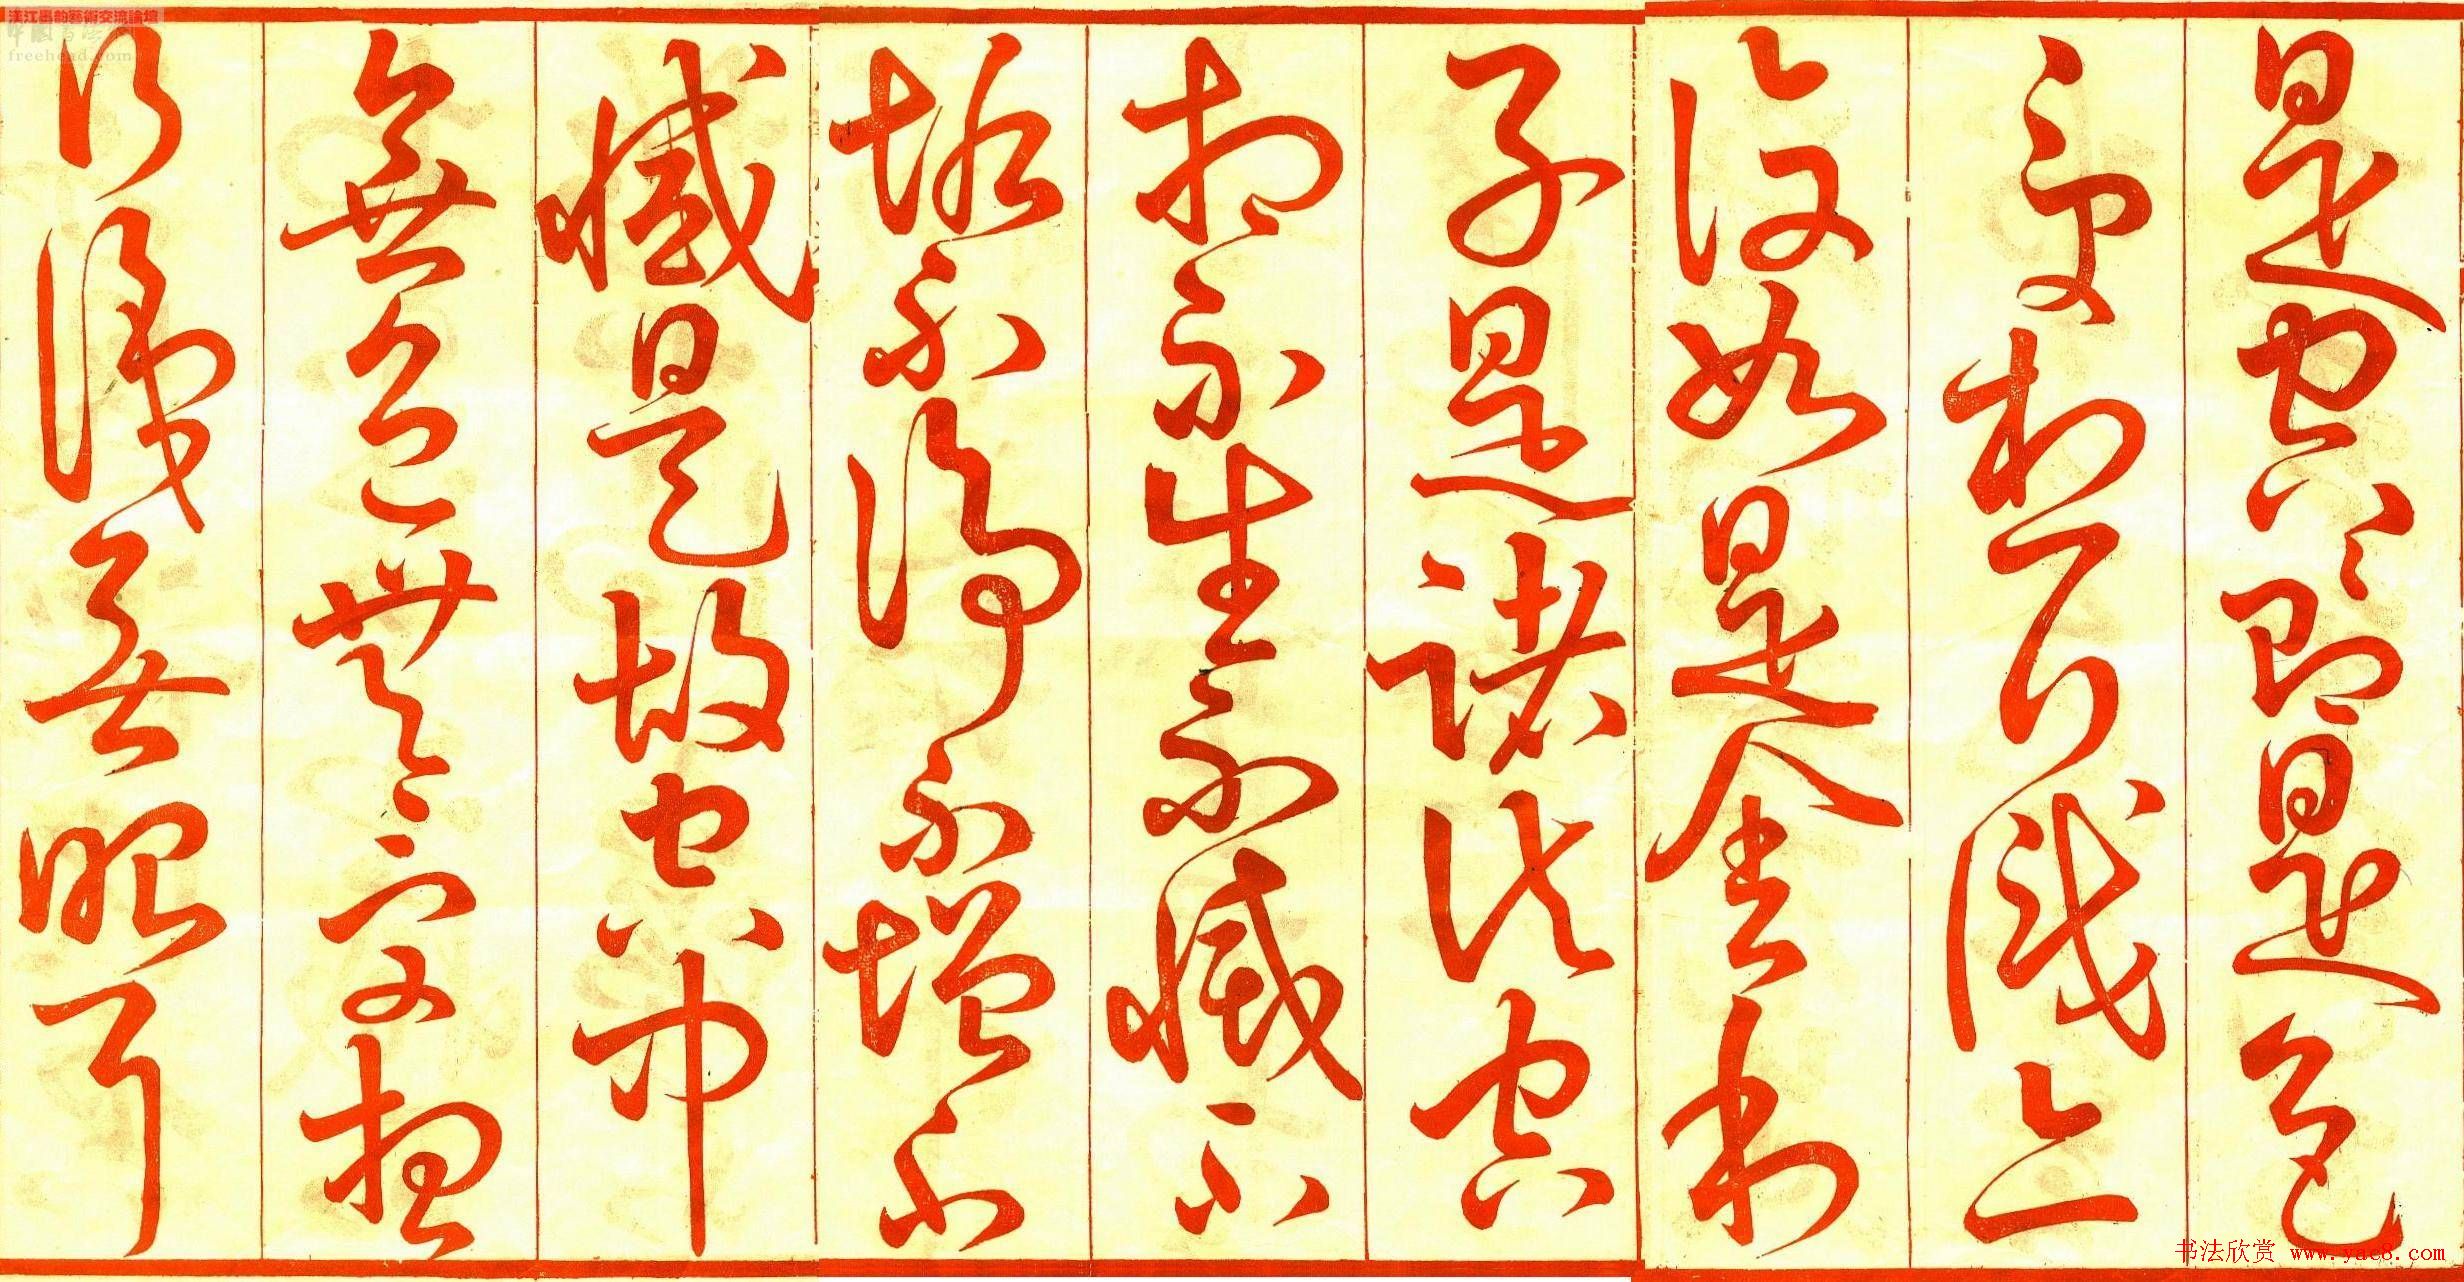 是空〻即是色
受想行識亦
復如是舍利
子是諸法空
相不生不滅不
垢不淨不增不
減是故空中
無色無受想
行識無眼耳
freehead.com
书法欣赏 www.yac8.com